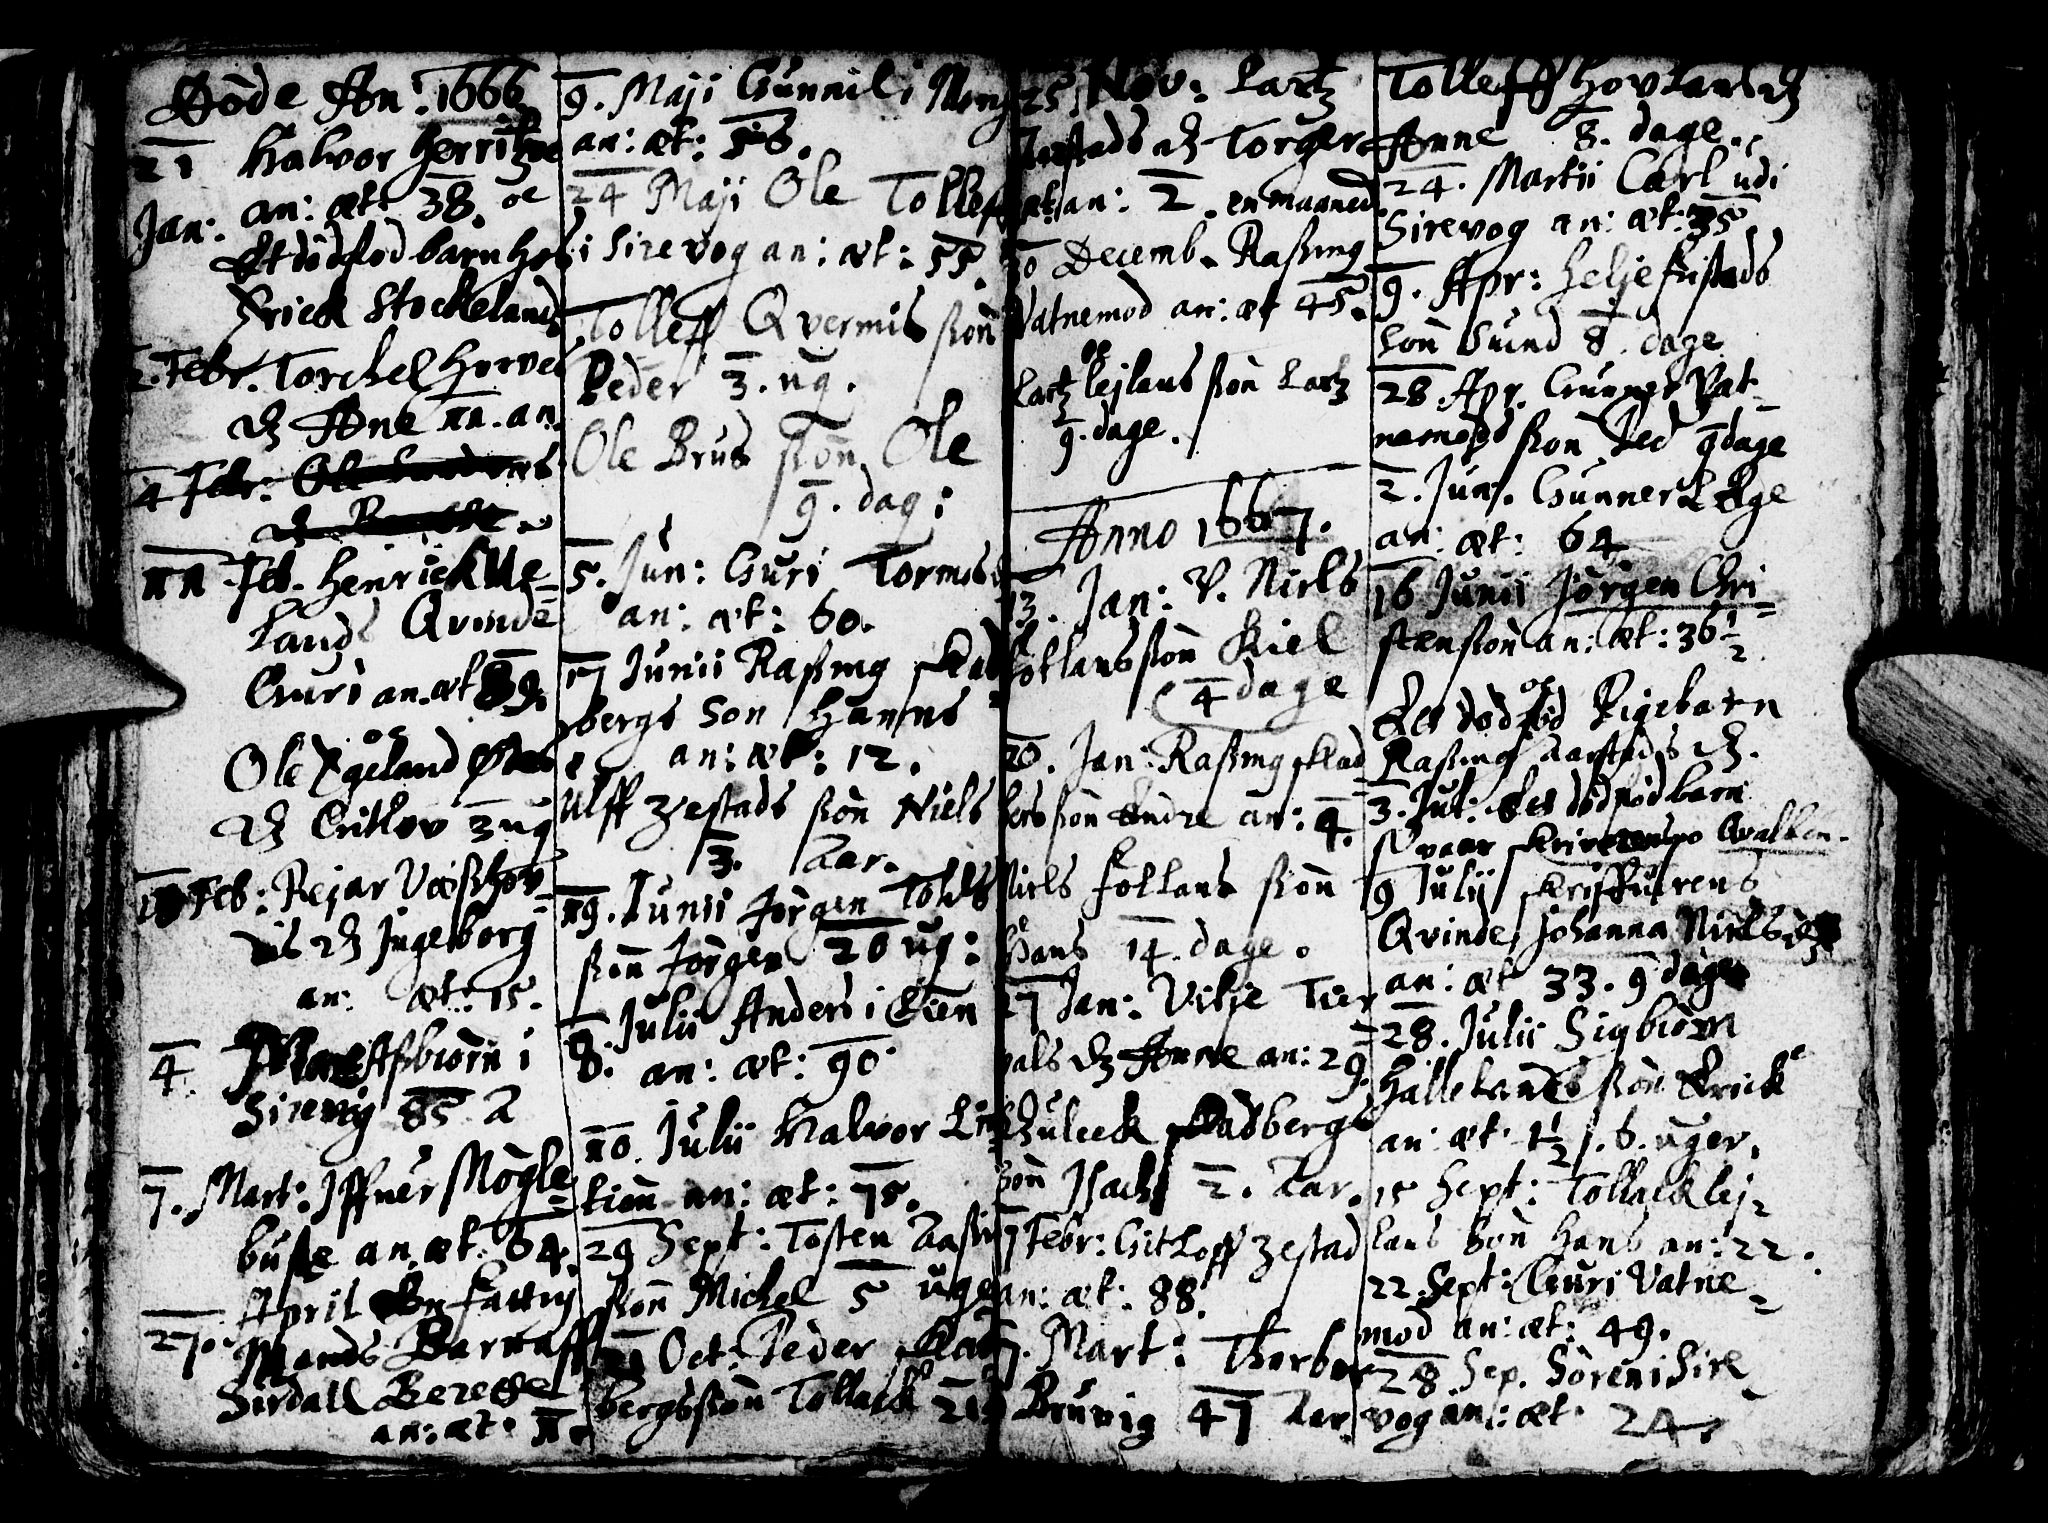 Döde An: 1666
21 Halvor Herritz
Jan: an: æt: 38. oc
Et dödfod barn hos
Erick Stockeland
2. Febr. Torckel Horves
Ane 11. an.
4 Febr: Ole
11 Feb. Henrick Ue=
lands Qvinde
Guri an. æt 39.
oc
Ole Egeland
Gitlov 3 ug
Feb: Rejar
Ingeborg
an: æt: 15.
4. Asbiörn i
Sirevig 85 A
7. Mart: Iffuer Mögle=
buste an. æt. 64.
April En fattig
27. Mands Barn aff
Sirdall Berette
an: æt. 11.
9. Maji Gunnil i
an: æt: 56.
24 Maji Ole Tolleff
i Sirevog an: æt: 55.
Tolleff Qvermis sön
Peder 3. ug.
Ole Brus sön Ole
9. dag:
5. Jun: Guri Tormos
an: æt: 60.
17 Junii Rasmg Skad
bergs son Hanns
an: æt: 12.
Ulff Zestads sön Niels
3. Aar.
19. Junii Jörgen Tolds
sön Jörgen 20 ug:
8. Julii Anders i Eien
an: æt: 90
10. Julii Halvor
an: æt: 75.
29 Sept: Tosten
sön Michel 5 uge
21 Oct: Peder Skad
bergs sön Tollack 21
25 Nov: Lartz
Torger
æt: an: 2. en maaned
30 Decemb. Rasmg
Vatnemod an: æt 45.
oc
Lartz Lejlans sön Lartz
9. dage.
Anno 1667.
13. Jan: V. Niels
Follans sön Kiel
4 dage
20. Jan: Rasmg Skad=
bers sön Endre an: 4.
Niels Follans sön
Hans 14. dage.
27 Jan: Vilje Tier=
vals Anne an: 29.
Guleck Skadbergs
sön Isach 2. Aar.
7 Febr: Gitloff Zestad
an: æt: 88.
7. Mart: Thorbor
Bruvig 47 Aar
Tolleff Hovlands
Anne 8. dage.
24. Martii Carl udi
Sirevog an: æt: 35.
9. Apr: Helje
sön Suend 8. dage
28. Apr. Gunner Vat=
nemods sön Ped 9 dage
2. Jun. Gunner Ege
an: æt: 64
16 Junii Jörgen Chri=
stensön an: æt: 36 1/2
oc
Et död fod Pigebarn
Rasmg Aarstads
3. Jul: Et dödfod barn
9 Julii
Qvinde, Johanna Niels
an: æt 33. 9 dage
28. Julii Sigbiörn
Hällelands sön Erick
an: æt: 1 1/2 6. uger.
15 Sept: Tollack Lej=
lans Sön Hans an: 22.
22. Sept: Guri Vatne=
mod an: æt: 49.
28. Sep. Sören i Sire=
vog an: æt 24.